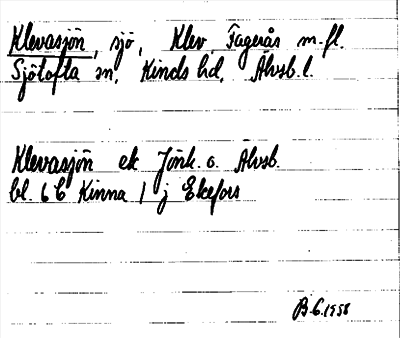 Klevasjön, sjö, Klev, Fagerås m.fl.
Sjötofta sn, Kinds hd, Älvsb. l.
Klevasjön ek Jönk. o. Älvsb.
bl. 6 C Kinna 1 j Ekefors
B.G. 1958